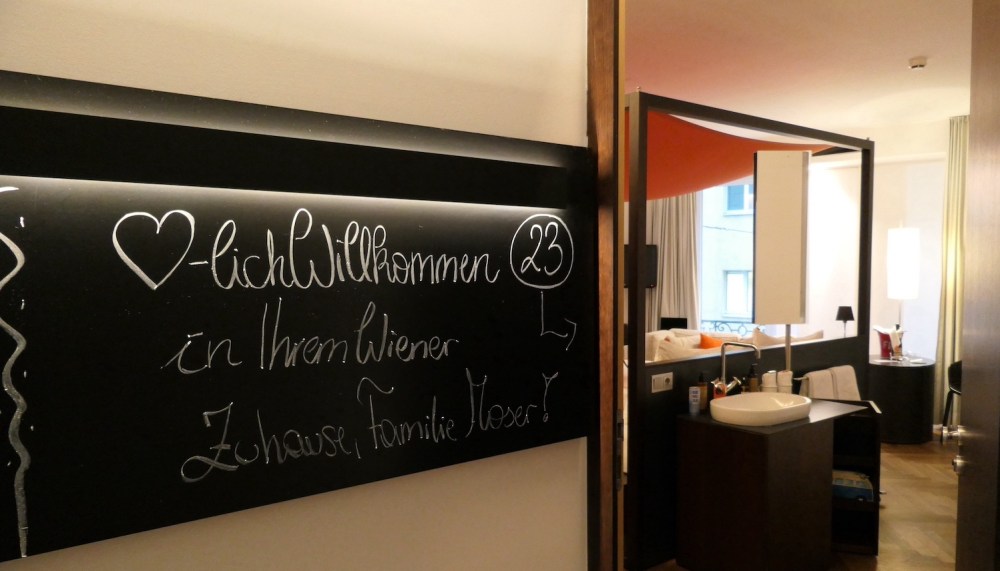 ♥-lich Willkommen 23
in Ihrem Wiener
Zuhause, Familie Moser!